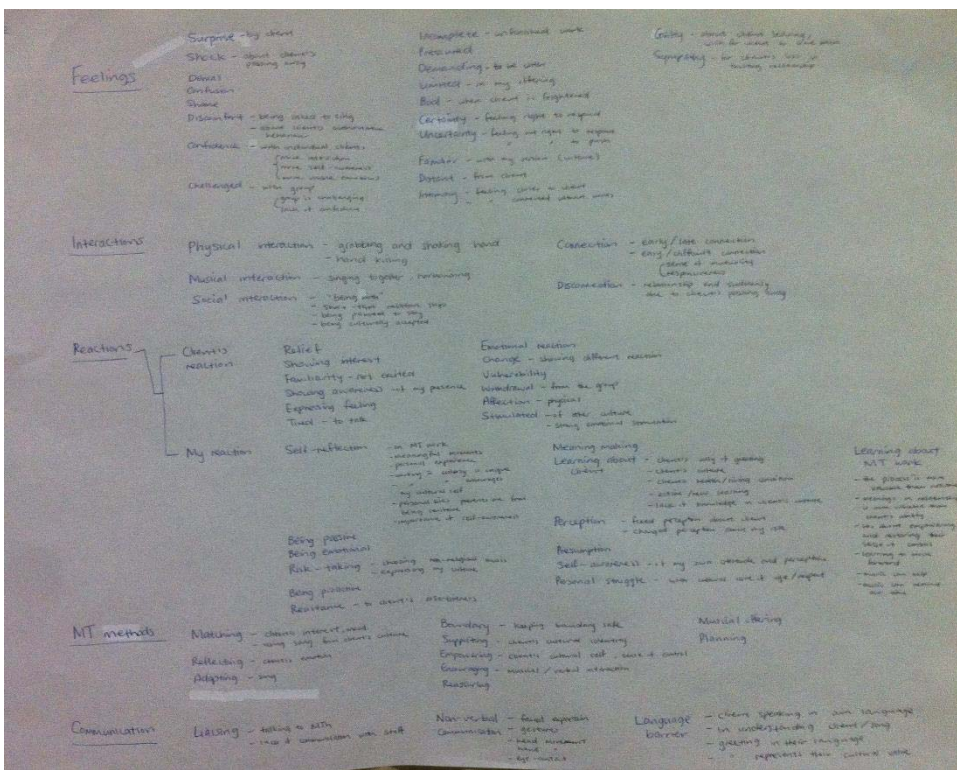 Feelings
Surprise - by client
Shock - about client's
passing away
Denial
Confusion
Shame
Discomfort - being asked to sing
- about client's
behaviour
Confidence - with individual clients
more
more self-awareness
more
Challenged - with group
group is challenging
lack of confidence
Incomplete - unfinished work
Presumed
Demanding - to be
Limited - in my offering
Bad - when client is frightened
Certainty - feeling right to respond
Uncertainty - feeling not right to respond
" " to
Familiar - with my
Distant - from client
Intimacy - feeling closer to client
- " connected
Guilty - about client leaving,
Sympathy - for client's loss of
trusting relationship
Interactions
Physical interaction - grabbing and shaking hand
- hand kissing
Musical interaction - singing together, harmonizing
Social interaction - "being with"
- being
- being culturally accepted
Connection - early/late connection
- easy/difficult connection
sense of
responsiveness
Disconnection - relationship end suddenly
due to client's passing away
Reactions
Client's
reaction
Relief
Showing interest
Familiarity - not
Showing awareness of my presence
Expressing feeling
Tired - to
Emotional reaction
Change - showing different reaction
Vulnerability
Withdrawal - from the group
Affection - physical
Stimulated - of other culture
- strong emotional stimulation
My reaction
Self-reflection - on MT work
- meaningful moments
- personal experience
- my cultural self
- importance of self-awareness
Being positive
Being emotional
Risk-taking - choosing music
- expressing my culture
Being proactive
Resistance - to client's assertiveness
Meaning making
Learning about - client's way of greeting
client - client's culture
- client's health/living condition
- lack of knowledge in client's culture
Perception - fixed perception about client
- changed perception about my role
Presumption
Self-awareness - of my own attitude and perception
Personal struggle - with values of age/respect
Learning about
MT work
- the process is more
valuable than
- meaning in relationship
is more valuable than
client's ability
empowering
and restoring their
sense of control
- learning to move
forward
- music can help
- music can
MT methods
Matching - client's interest, mood
- using song from client's culture
Reflecting - client's emotion
Adapting - song
Boundary - keeping boundary safe
Supporting - client's cultural identity
Empowering - client's cultural self, sense of control
Encouraging - musical/verbal interaction
Reassuring
Musical offering
Planning
Communication
Liaising - talking to MTh
- lack of communication with staff
Non-verbal - facial expression
Communication - gestures
- head movement
- eye contact
Language
barrier
- client speaking in own language
- in understanding client/song
- greeting in their language
- " represents their cultural value